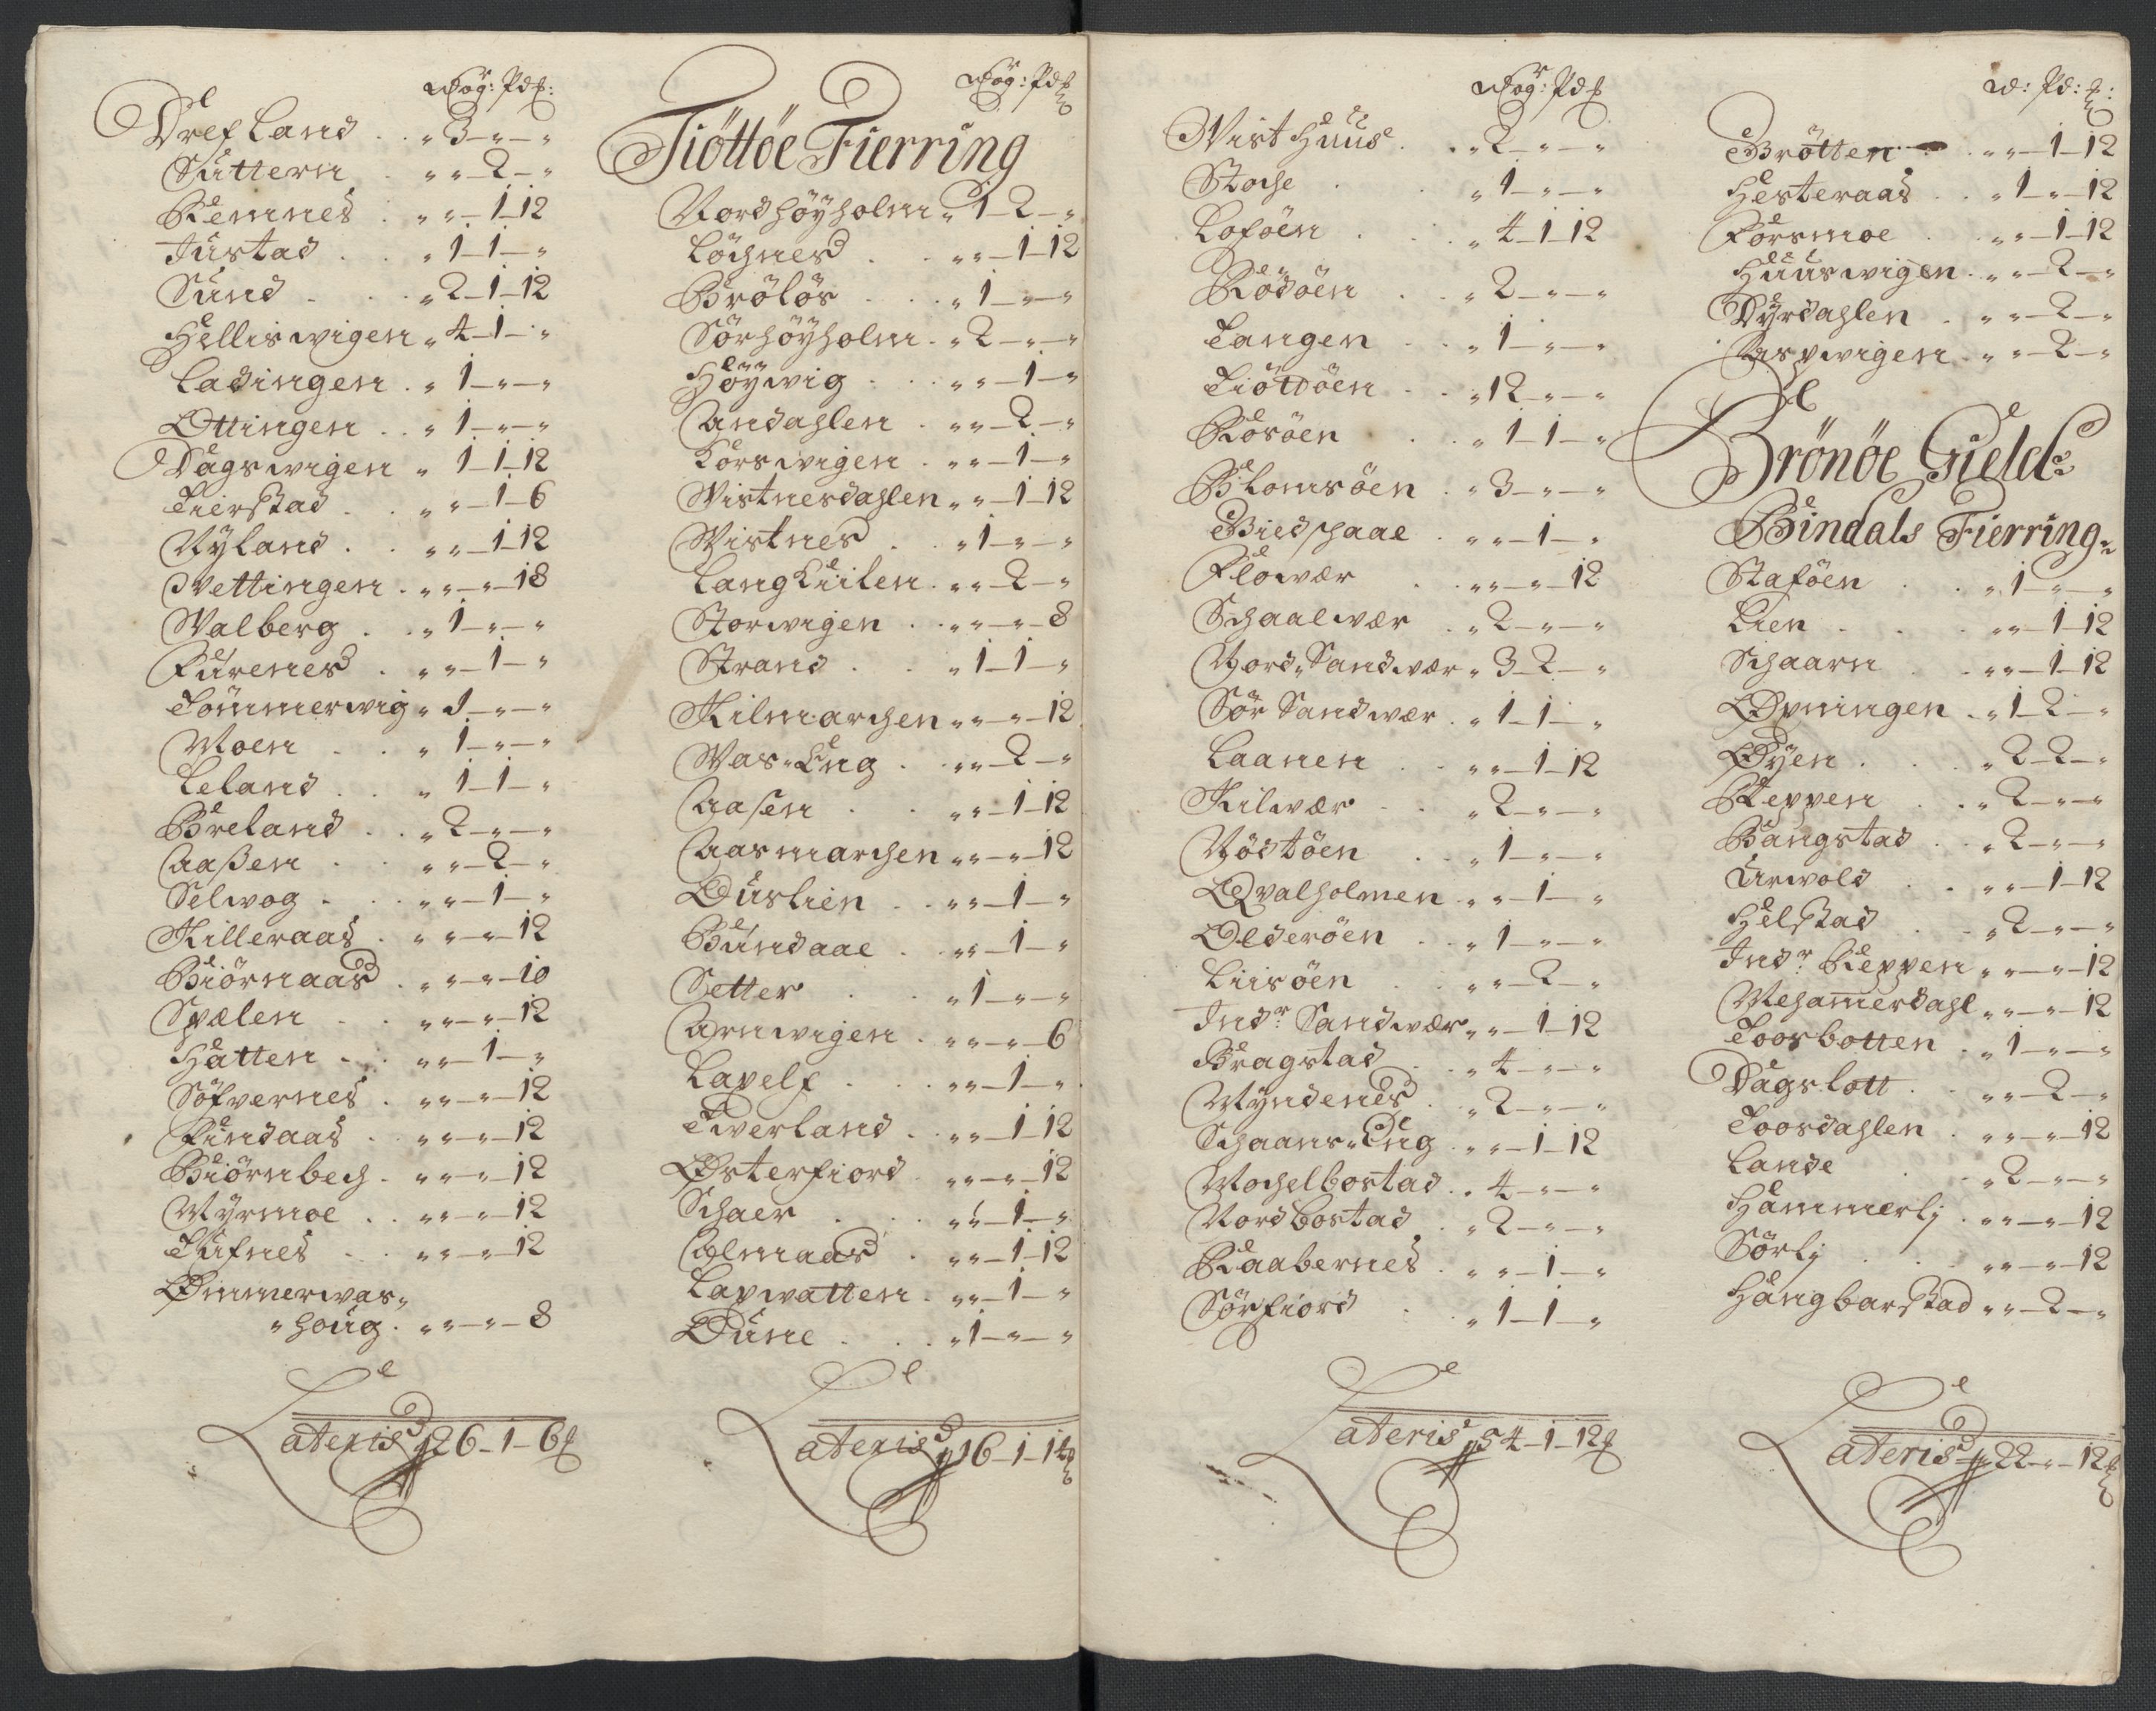 Wog: Pd ℔:
Drefland . . „ 3 - „ - „
Suttern . „ „ - 2 - „
Remnes . „ „ - 1 - 12
Justad . . „ 1 - 1 - „
Sund . . „ 2 - 1 - 12
Helliswigen „ 4 - 1 - „
Ladingen . „ 1 - „ - „
Ottingen . . „ 1 - „ - „
Dagswigen „ 1 - 1 - 12
Tierstad . . „ „ - 1 - 6
Nyland . . „ „ - 1 - 12
Vettingen . „ „ - „ - 18
Walberg . . „ 1 - „ - „
Furenes . „ „ - 1 - „
Tömmerwig „ 1 - „ - „
Moen . . „ 1 - „ - „
Leland . . „ 1 - 1 - „
Breland . . „ 2 - „ - „
Aaßen . . „ „ - 2 - „
Selwog . . „ „ - 1 - „
Killeraas . „ „ - „ - 12
Biörnaas . „ „ - „ - 10
Spælen . . „ „ - „ - 12
Hatten . . „ „ - 1 - „
Söfvernes . „ „ - „ - 12
Findaas . . „ „ - „ - 12
Biörnbech . „ „ - „ - 12
Myrmoe . . „ „ - „ - 12
Tufnes . . „ „ - „ - 12
Ømmerwas„
„houg . „ „ - „ - 8
Lateris 26 - 1 - 6 ℔
Wog: Pd ℔
Tiöttöe Fierring
Nordhöyholm „ 1 - 2 - „
Löchnes . . „ „ - 1 - 12
Brölös . . „ 1 - „ - „
Sörhöyholm . „ 2 - „ - „
Höywig . . „ „ - 1 - „
Andahlen . „ „ - 2 - „
Korswigen . „ „ - 1 - „
Wistnesdahlen „ „ - 1 - 12
Wistnes . . „ 1 - „ - „
Langkiilen . „ „ - 2 - „
Storwigen . „ „ - „ - 8
Strand . . „ 1 - 1 - „
Kilmarchen „ „ - „ - 12
Was„Eng . „ „ - 2 - „
Aasen . . „ „ - 1 - 12
Aasmarchen „ „ - „ - 12
Duslien . . „ „ - 1 - „
Bundaae . . „ „ - 1 - „
Setter . . „ 1 - „ - „
Arnwigen . „ „ - „ - 6
Lapelf . . „ „ - 1 - „
Twerland . „ „ - 1 - 12
Østerfiord . „ „ - „ - 12
Schaer . . „ „ - 1 - „
Almaas . . „ „ - 1 - 12
Lapwatten . „ „ - 1 - „
Dune . . „ 1 - „ - „
Lateris 16 - 1 - 14 ℔
Wog: Pd ℔
Wisthuus . . „ 2 - „ - „
Stoche . . „ 1 - „ - „
Loföen . . „ 4 - 1 - 12
Rödöen . . „ 2 - „ - „
Tangen . . „ 1 - „ - „
Tiöttöen . . „ 12 - „ - „
Rosöen . . „ 1 - 1 - „
Blomsöen . „ 3 - „ - „
Giedschaae . „ „ - 1 - „
Flowær . . „ „ - „ - 12
Schaalwær . „ 2 - „ - „
Nord„Sandwær „ 3 - 2 - „
Sör Sandwær . „ 1 - 1 - „
Laanen . . „ „ - 1 - 12
Kilwær . . „ 2 - „ - „
Nödtöen . . „ 1 - „ - „
Qvalholmen . „ „ - 1 - „
Olderöen . . „ 1 - „ - „
Liisöen . . „ „ - 2 - „
Indr: Sandwær „ „ - 1 - 12
Bragstad . . „ 4 - „ - „
Myndenes . „ 2 - „ - „
Schaans„Eng . „ „ - 1 - 12
Mochelbostad . „ 4 - „ - „
Nordbostad . „ 2 - „ - „
Raabernes . „ „ - 1 - „
Sörfiord . . „ 1 - 1 - „
Lateris 54 - 1 - 12 ℔
W: Pd: ℔:
Brötten . . „ „ - 1 - 12
Hesteraas . . „ 1 - „ - 12
Forsmoe . . „ „ - 1 - 12
Huuswigen . „ „ - 2 - „
Dyrdahlen . „ „ - 2 - „
Aspwigen . „ „ - 2 - „
Brönöe Gield
Bindals Fierring„
Staföen . . „ 1 - „ - „
Lien . . „ „ - 1 - 12
Schaarn . . „ „ - 1 - 12
Øpningen . „ 1 - 2 - „
Øyen . . „ 2 - 2 - „
Reppen . . „ 2 - „ - „
Bangstad . . „ 2 - „ - „
Urwold . . „ „ - 1 - 12
Helstad . . „ 2 - „ - „
Indr: Reppen „ „ - „ - 12
Mehamerdahl „ „ - „ - 12
Toosbotten . „ 1 - „ - „
Dagslott . . „ „ - 2 - „
Toosdahlen . „ „ - „ - 12
Lande . . „ 2 - „ - „
Hammerlj . „ „ - „ - 12
Sörlj . . „ „ - „ - 12
Hangbarstad „ „ - 2 - „
Lateris 22 - „ - 12 ℔